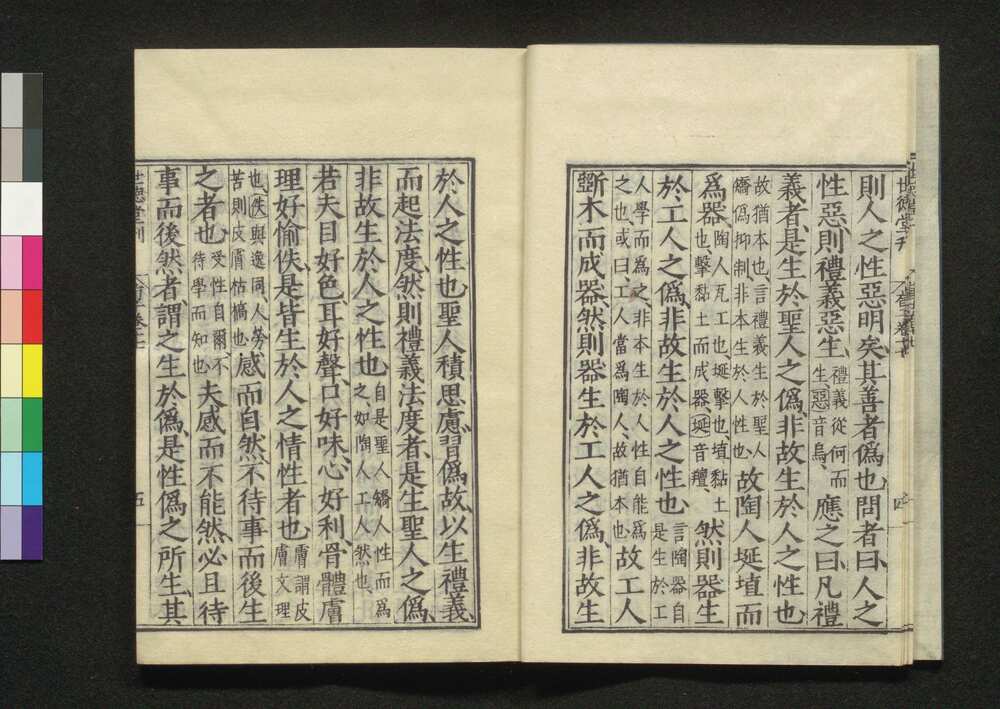 則人之性惡明矣其善者偽也問者曰人之
性惡則禮義惡生禮義從何而生惡音烏應之曰凡禮
義者是生於聖人之偽非故生於人之性也
故猶本也言禮義生於聖人矯偽抑制非本生於人性也故陶人埏埴而
為器陶人瓦工也埏擊也埴黏土也擊黏土而成器埏音羶然則器生
於工人之偽非故生於人之性也言陶器自是生於工
人學而為之非本生於人性自能為之也或曰工人當為陶人故猶本也故工人
斲木而成器然則器生於工人之偽非故生
於人之性也聖人積思慮習偽故以生禮義
而起法度然則禮義法度者是生聖人之偽
非故生於人之性也自是聖人矯人性而為之如陶人工人然也
若夫目好色耳好聲口好味心好利骨體膚
理好愉佚是皆生於人之情性者也膚謂皮膚文理
也佚與逸同人勞苦則皮膚枯槁也感而自然不待事而後生
之者也受性自爾不待學而知也夫感而不能然必且待
事而後然者謂之生於偽是性偽之所生其
世德堂刊
五
世德堂刊
四